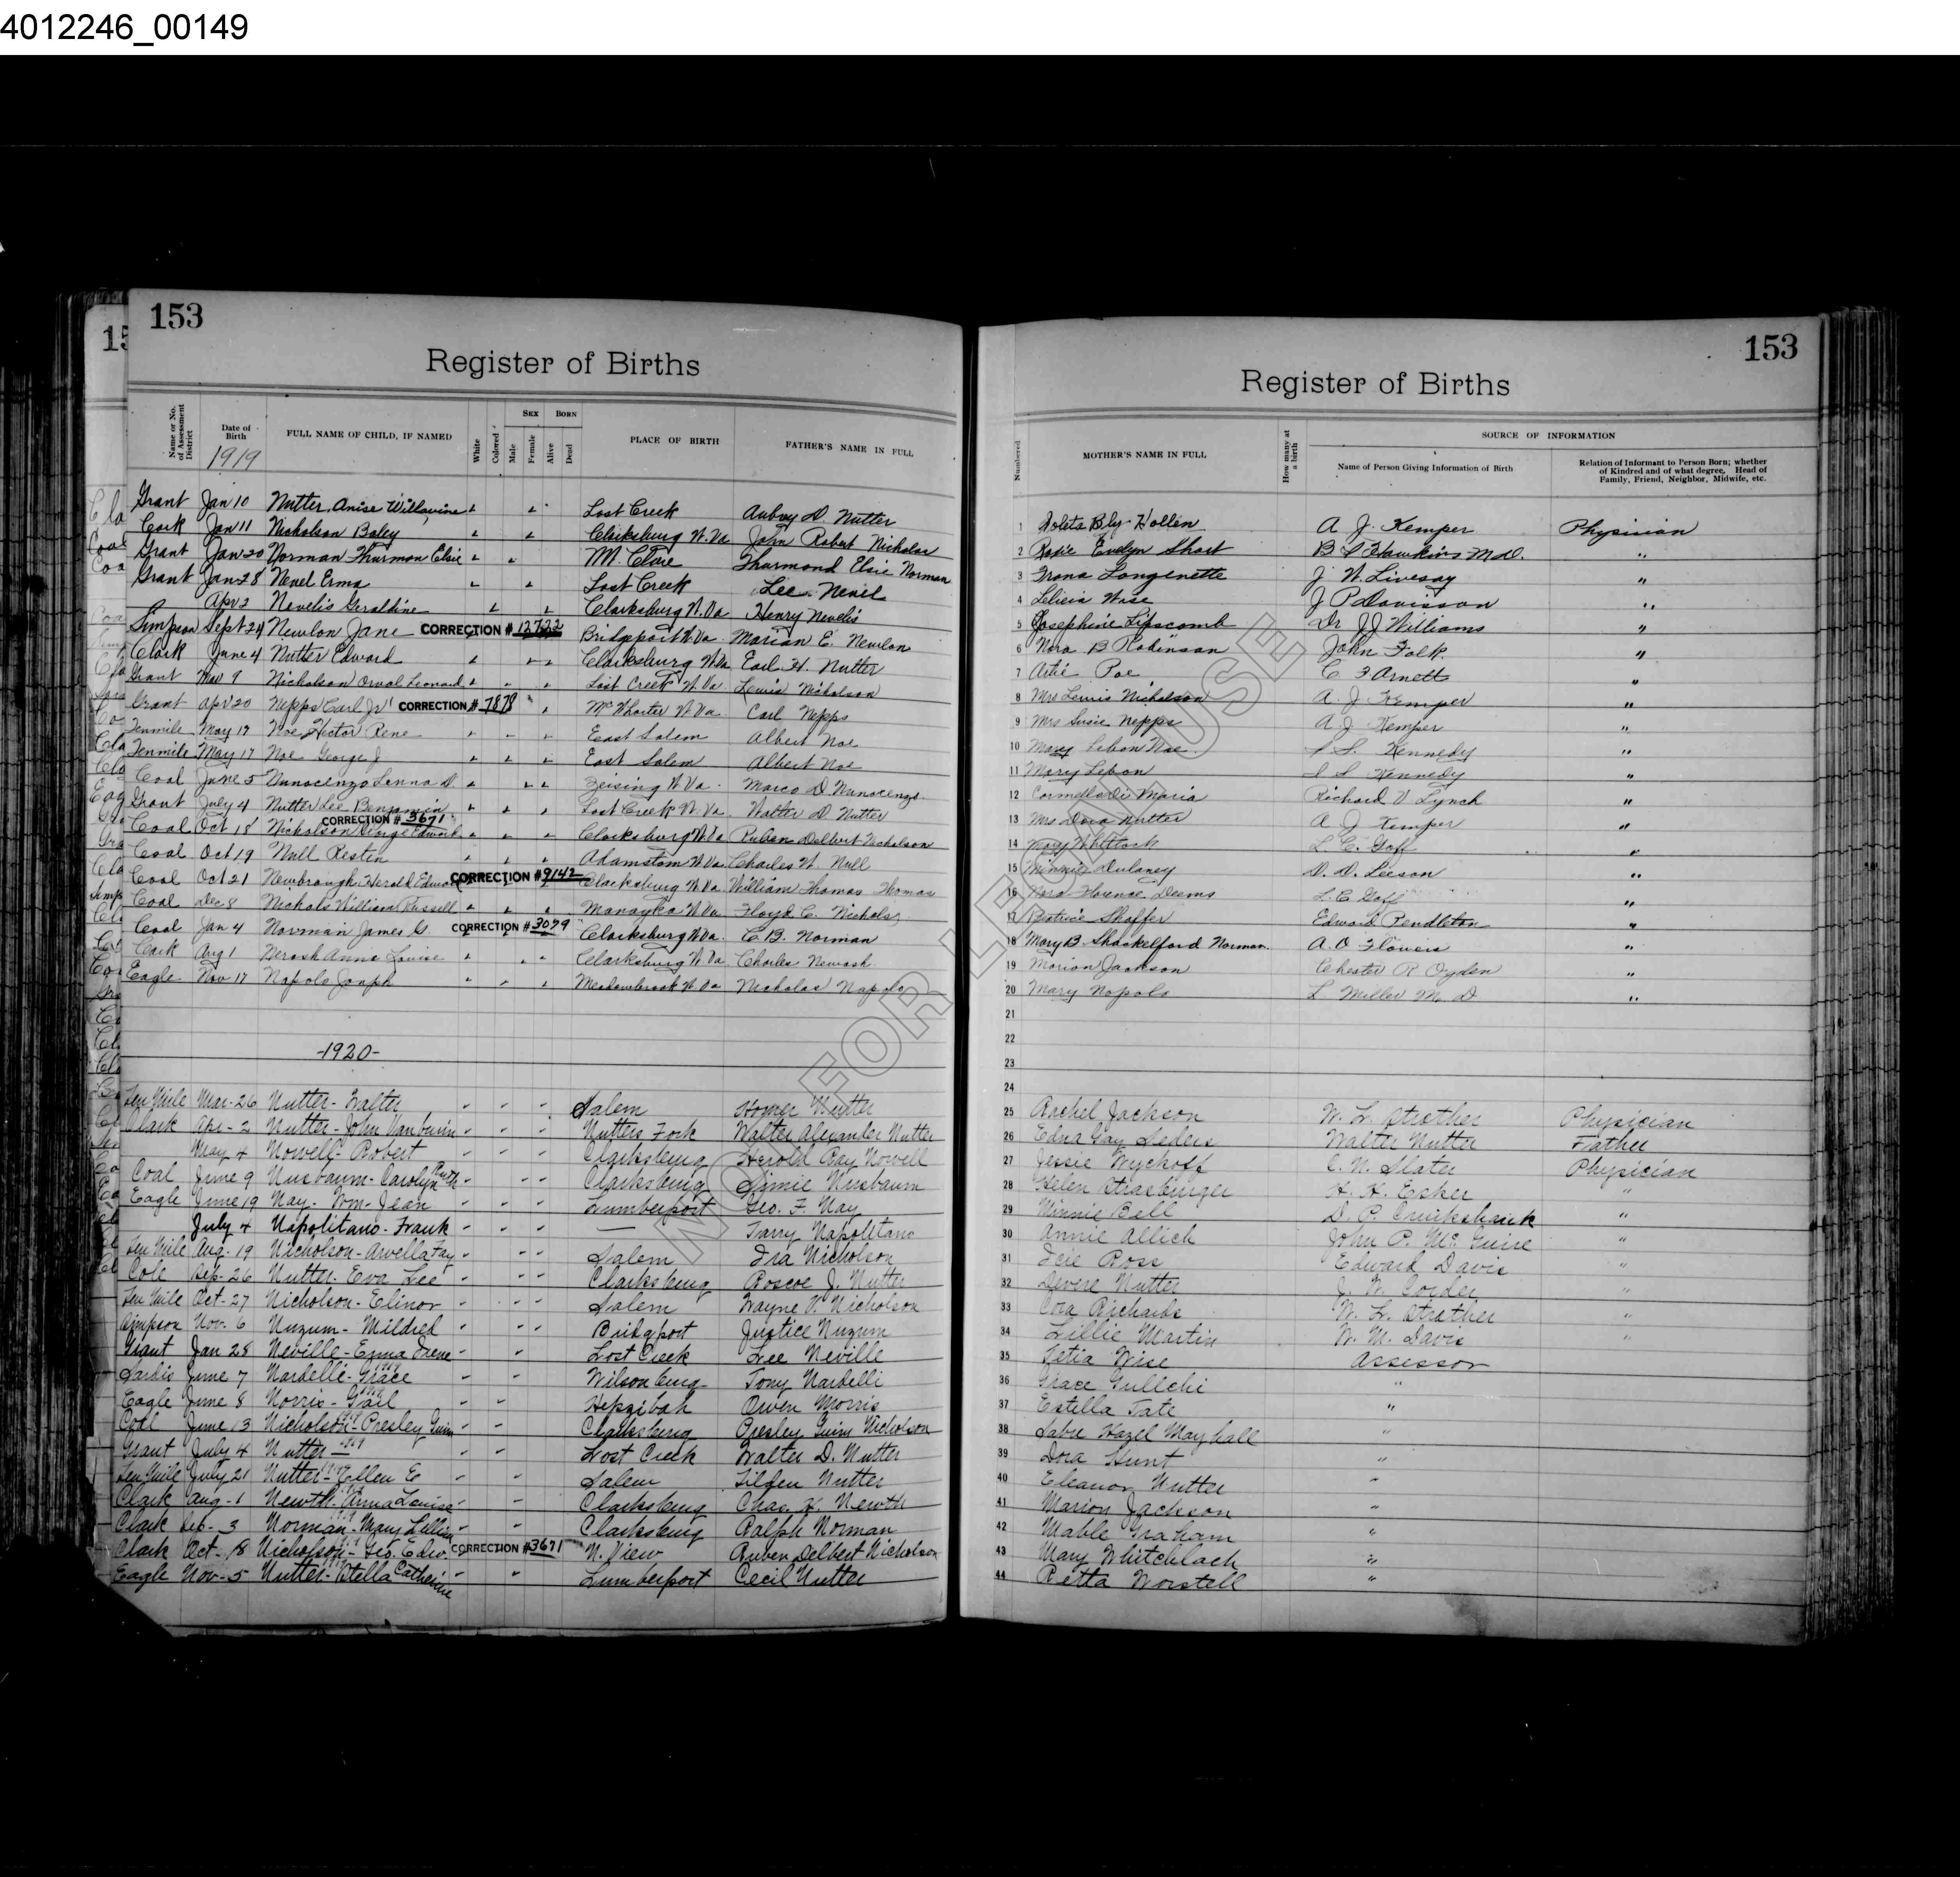 4012246_00149
153
Register of Births
Name or No. of Assessment District
Date of Birth
1919
FULL NAME OF CHILD, IF NAMED
White
Colored
SEX
Male
Female
BORN
Alive
Dead
PLACE OF BIRTH
FATHER'S NAME IN FULL
Grant Jan 10 Nutter, Anise Lost Creek Aubry D. Nutter
Cork Jan 11 Nicholson Boley Clarksburg W.Va John Robert Nicholas
Grant Jan 20 Norman Thurmon Elsie Mt. Clare Thurmond Elsie Norman
Grant Jan 28 Nevel Erma Lost Creek Lee Nevel
Apr 2 Nevelis Geraldine Clarksburg W.Va Henry Nevelis
Simpson Sept 24 Newlon Jane CORRECTION # 12722 Bridgeport W.Va. Marian E. Newlon
Clark June 4 Nutter Edward Clarksburg W.Va Earl H. Nutter
Grant Nov 9 Nicholson Orval Leonard Lost Creek W.Va Lewis Nicholson
Grant Apr 20 Nepps Carl Jr CORRECTION # 7878 McWhorter W.Va Carl Nepps
Tenmile May 17 Noe Hector Rene East Salem Albert Noe
Tenmile May 17 Noe George J East Salem Albert Noe
Coal June 5 Nunocenzo Lenna D. Zeising W.Va. Marco D. Nunocenzo
Grant July 4 Nutter Lee Benjamin Lost Creek W.Va. Walter D Nutter
CORRECTION # 3671
Coal Oct 18 Nicholson George Edward Clarksburg W.Va Ruben Delbert Nicholson
Coal Oct 19 Null Resten Adamston W.Va. Charles W. Null
Coal Oct 21 Newbrough Herold Edward CORRECTION # 9142 Clarksburg W.Va William Thomas Thomas
Coal Dec 8 Nichols William Russell Monongka W.Va Floyd C. Nichols
Coal Jan 4 Norman James G. CORRECTION # 3079 Clarksburg W.Va. C. B. Norman
Cark Aug 1 Anna Louise Clarksburg W.Va Charles
Eagle Nov 17 Napolo Joseph Meadowbrook W.Va Nicholas Napolo
-1920-
Ten Mile Mar-26 Nutter- Walter Salem Homer Nutter
Clark Apr-2 Nutter- John Vanburin Nutters Fork Walter Alexander Nutter
May 4 Nowell- Robert Clarksburg Herold Ray Nowell
Coal June 9 Nusbaum- Carolyn Ruth Clarksburg Simie Nusbaum
Eagle June 19 Nay- Wm- Jean Lumberport Geo. F. Nay
July 4 Napolitano- Frank — Napolitano
Ten Mile Aug. 19 Nicholson- Arvella Fay Salem Ira Nicholson
Cole Sep-26 Nutter- Eva Lee Clarksburg Roscoe J. Nutter
Ten Mile Oct-27 Nicholson- Elinor Salem Wayne V. Nicholson
Simpson Nov. 6 Nuzum- Mildred Bridgport Justice Nuzum
Grant Jan 28 Neville- Erma Irene Lost Creek Lee Neville
Sardis June 7 Nardelli- Grace 1919 Wilsonburg Tony Nardelli
Eagle June 8 Norris- Gail 1919 Hepzibah Owen Morris
Coal June 13 Nicholson- Presley Guinn Clarksburg Presley Guinn Nicholson
Grant July 4 Nutter— 1919 Lost Creek Walter D. Nutter
Ten Mile July 21 Nutter- Ellen E 1919 Salem Tilden Nutter
Clark Aug-1 Newth- Anna Louise Clarksburg Chas. H. Newth
Clark Sep-3 Norman- Mary Lillian Clarksburg Ralph Norman
Clark Oct-18 Nicholson- Geo. Edw. CORRECTION # 3671 N. View Ruben Delbert Nicholson
Eagle Nov-5 Nutter- Stella Catherine Lumberport Cecil Nutter
153
Register of Births
Numbered
MOTHER'S NAME IN FULL
How many at a birth
SOURCE OF INFORMATION
Name of Person Giving Information of Birth
Relation of Informant to Person Born; whether of Kindred and of what degree, Head of Family, Friend, Neighbor, Midwife, etc.
1 Bly Hollen A. J. Kemper Physician
2 Rosie Evelyn Short B S Hawkins M.D. "
3 Frona Longenette J. W. Livesay "
4 Lelicia Wise J P Davisson "
5 Josephine Lipscomb Dr JJ Williams "
6 Nora B Robinson John Folk "
7 Artie Poe C F Arnett "
8 Mrs Lewis Nicholson A. J. Kemper "
9 Mrs Susie Nepps A J Kemper "
10 Mary Lebon Noe S S. Kennedy "
11 Mary Lebon S S Kennedy "
12 Cormella Di Maria Richard V Lynch "
13 Mrs Dora Nutter A J Kemper "
14 Mary Whitlock L. C. Goff "
15 Minnie Dulaney D. D. Leeson "
16 Nora Florence Deems L. C. Goff "
17 Beatrice Shaffer Edward Pendleton "
18 Mary B. Shackelford Norman A. O Flowers "
19 Marion Jackson Chester R Ogden "
20 Mary Napolo L Miller M. D "
21
22
23
24
25 Rachel Jackson W. L. Strother Physician
26 Edna Gay Seders Walter Nutter Father
27 Jessie Wyckoff C. N. Slater Physician
28 Helen Strasburger H. H. Esker "
29 Minnie Bell D. P. Cruikshank "
30 Annie Allich John P. McGuire "
31 Icie Ross Edward Davis "
32 Devere Nutter J. W. Corder "
33 Cora Richards W. L. Strother "
34 Lillie Martin W. M. Davis "
35 Letia Wise Assessor
36 Grace Gullchi "
37 Estella Tate "
38 Sabre Hazel Mayhall "
39 Dora Hunt "
40 Eleanor Nutter "
41 Marion Jackson "
42 Mable Graham "
43 Mary Whitchlach "
44 Retta Worstell "
NOT FOR LEGAL USE